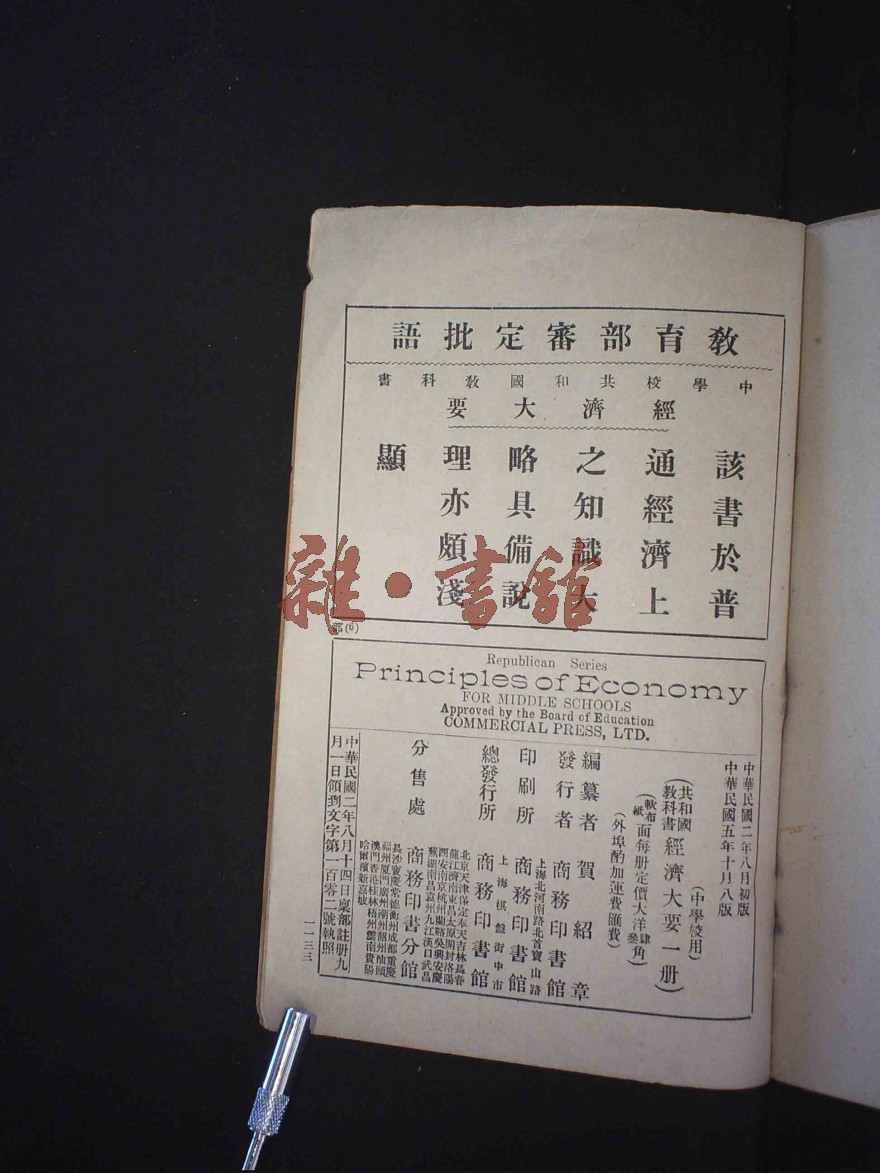 教育部審定批語
中學校共和國教科書
經濟大要
該書於普
通經濟上
之知識大
略具備說
理亦頗淺
顯
部(6)
雜·書館
Republican Series
Principles of Economy
FOR MIDDLE SCHOOLS
Approved by the Board of Education
COMMERCIAL PRESS, LTD.
中華民國二年八月初版
中華民國五年十月八版
(中學校用)
(共和國教科書)經濟大要一册
(軟布紙面每册定價大洋肆叁角)
(外埠酌加運費匯費)
編纂者 賀紹章
發行者 商務印書館
上海北河南路北首寶山路
印刷所 商務印書館
上海棋盤街中市
總發行所 商務印書館
北京天津保定奉天吉林長春
龍江濟南東昌太原開封洛陽
西安南京杭州蘭谿吳興安慶
蕪湖南昌袁州九江漢口武昌
分售處 商務印書分館
長沙寶慶常德衡州成都重慶
福州厦門廣州潮州韶州汕頭
澳門香港桂林梧州雲南貴陽
哈爾濱新嘉坡
中華民國二年八月十四日稟部註册九
月一日領到文字第一百零二號執照
一一三三